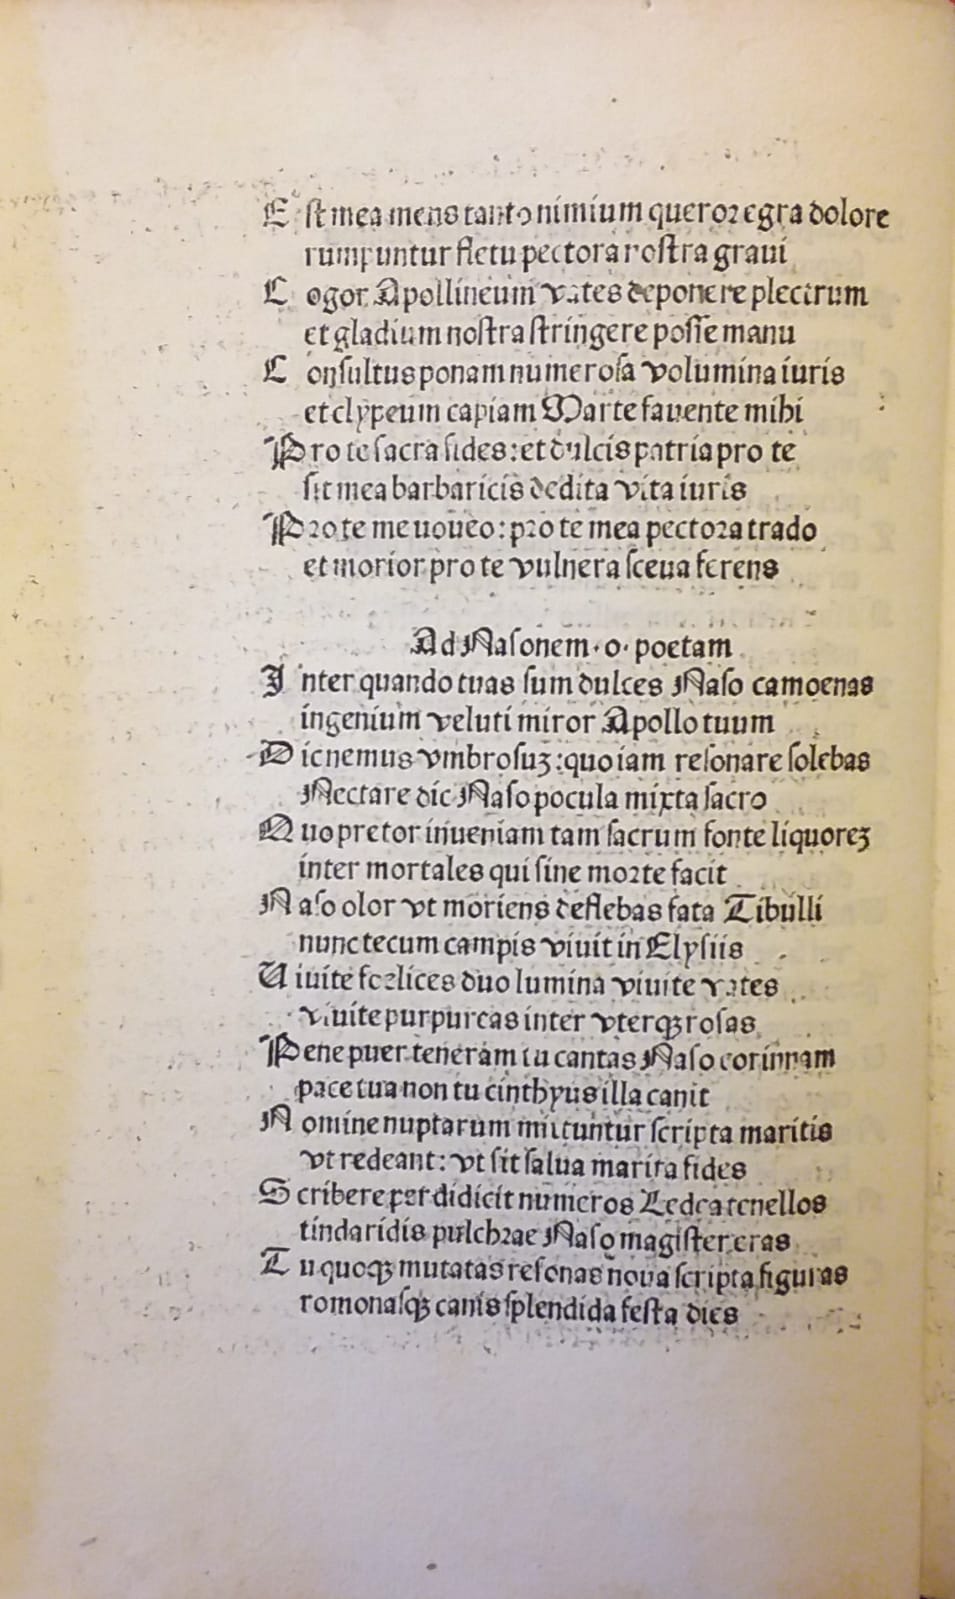 Est mea mens tanto nimium queror egra dolore
rumpuntur fletu pectora nostra graui
Cogor Apollineum vates deponere plectrum
et gladium nostra stringere posse manu
Consultus ponam numerosa volumina iuris
et clypeum capiam Marte fauente mihi
Pro te sacra fides: et dulcis patria pro te
sit mea barbaricis dedita vita iuris
Pro te me uoueo: pro te mea pectora trado
et morior pro te vulnera sceua ferens
Ad Nasonem · o · poetam
Inter quando tuas sum dulces Naso camoenas
ingenium veluti miror Apollo tuum
Dic nemus vmbrosuꝫ: quo iam resonare solebas
Nectare dic Naso pocula mixta sacro
Quo pretor inueniam tam sacrum fonte liquoreꝫ
inter mortales qui sine morte facit
Naso olor vt moriens deflebas fata Tibulli
nunc tecum campis viuit in Elysiis
Uiuite foelices duo lumina viuite vates
viuite purpureas inter vterqꝫ rosas
Pene puer teneram tu cantas Naso corinnam
pace tua non tu cinthyus illa canit
Nomine nuptarum mittuntur scripta maritis
vt redeant: vt sit salua marita fides
Scribere per didicit numeros Ledea tenellos
tindaridis pulchrae Naso magister eras
Tu quoqꝫ mutatas resonas noua scripta figuras
romonasqꝫ canis splendida festa dies